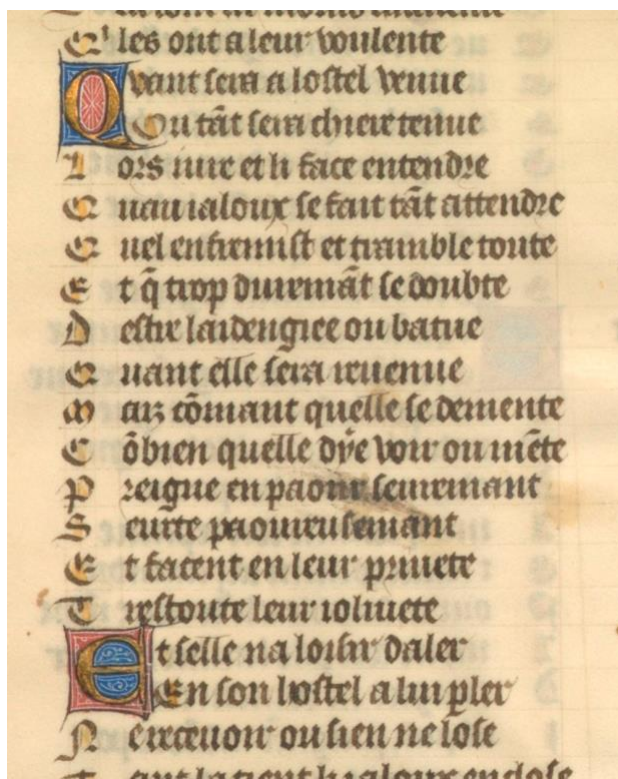 Q' les ont a leur voulente
Quant sera a lostel venue
Ou tāt sera chiere tenue
Lors iure et li face entendre
Quau ialoux se fait tāt attendre
Quel enfremist et tramble toute
Et q̄ trop duremāt se doubte
Destre laidengiee ou batue
Quant elle sera reuenue
Maiz cōmant quelle se demente
Cōbien quelle dye voir ou mēte
Preigne en paour seuremant
Seurte paoureusemant
Et facent en leur priuete
Trestoute leur ioliuete
Et selle na loisir daler
En son hostel a lui p̱ler
Ne receuoir ou sien ne lose
Tant la tient li ialoux enclose